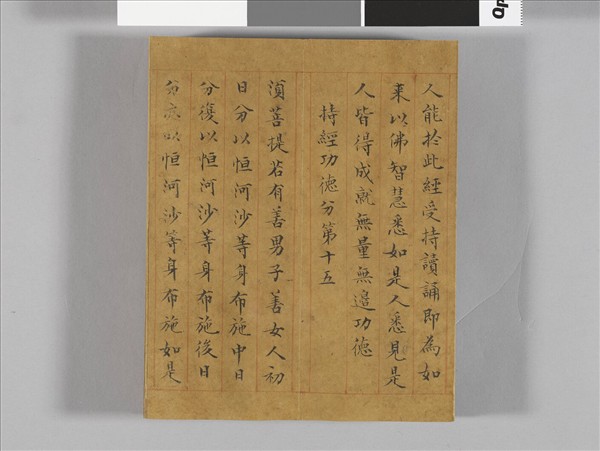 人能於此經受持讀誦即為如
來以佛智慧悉知是人悉見是
人皆得成就無量無邊功德
持經功德分第十五
須菩提若有善男子善女人初
日分以恒河沙等身布施中日
分復以恒河沙等身布施後日
分亦以恒河沙等身布施如是